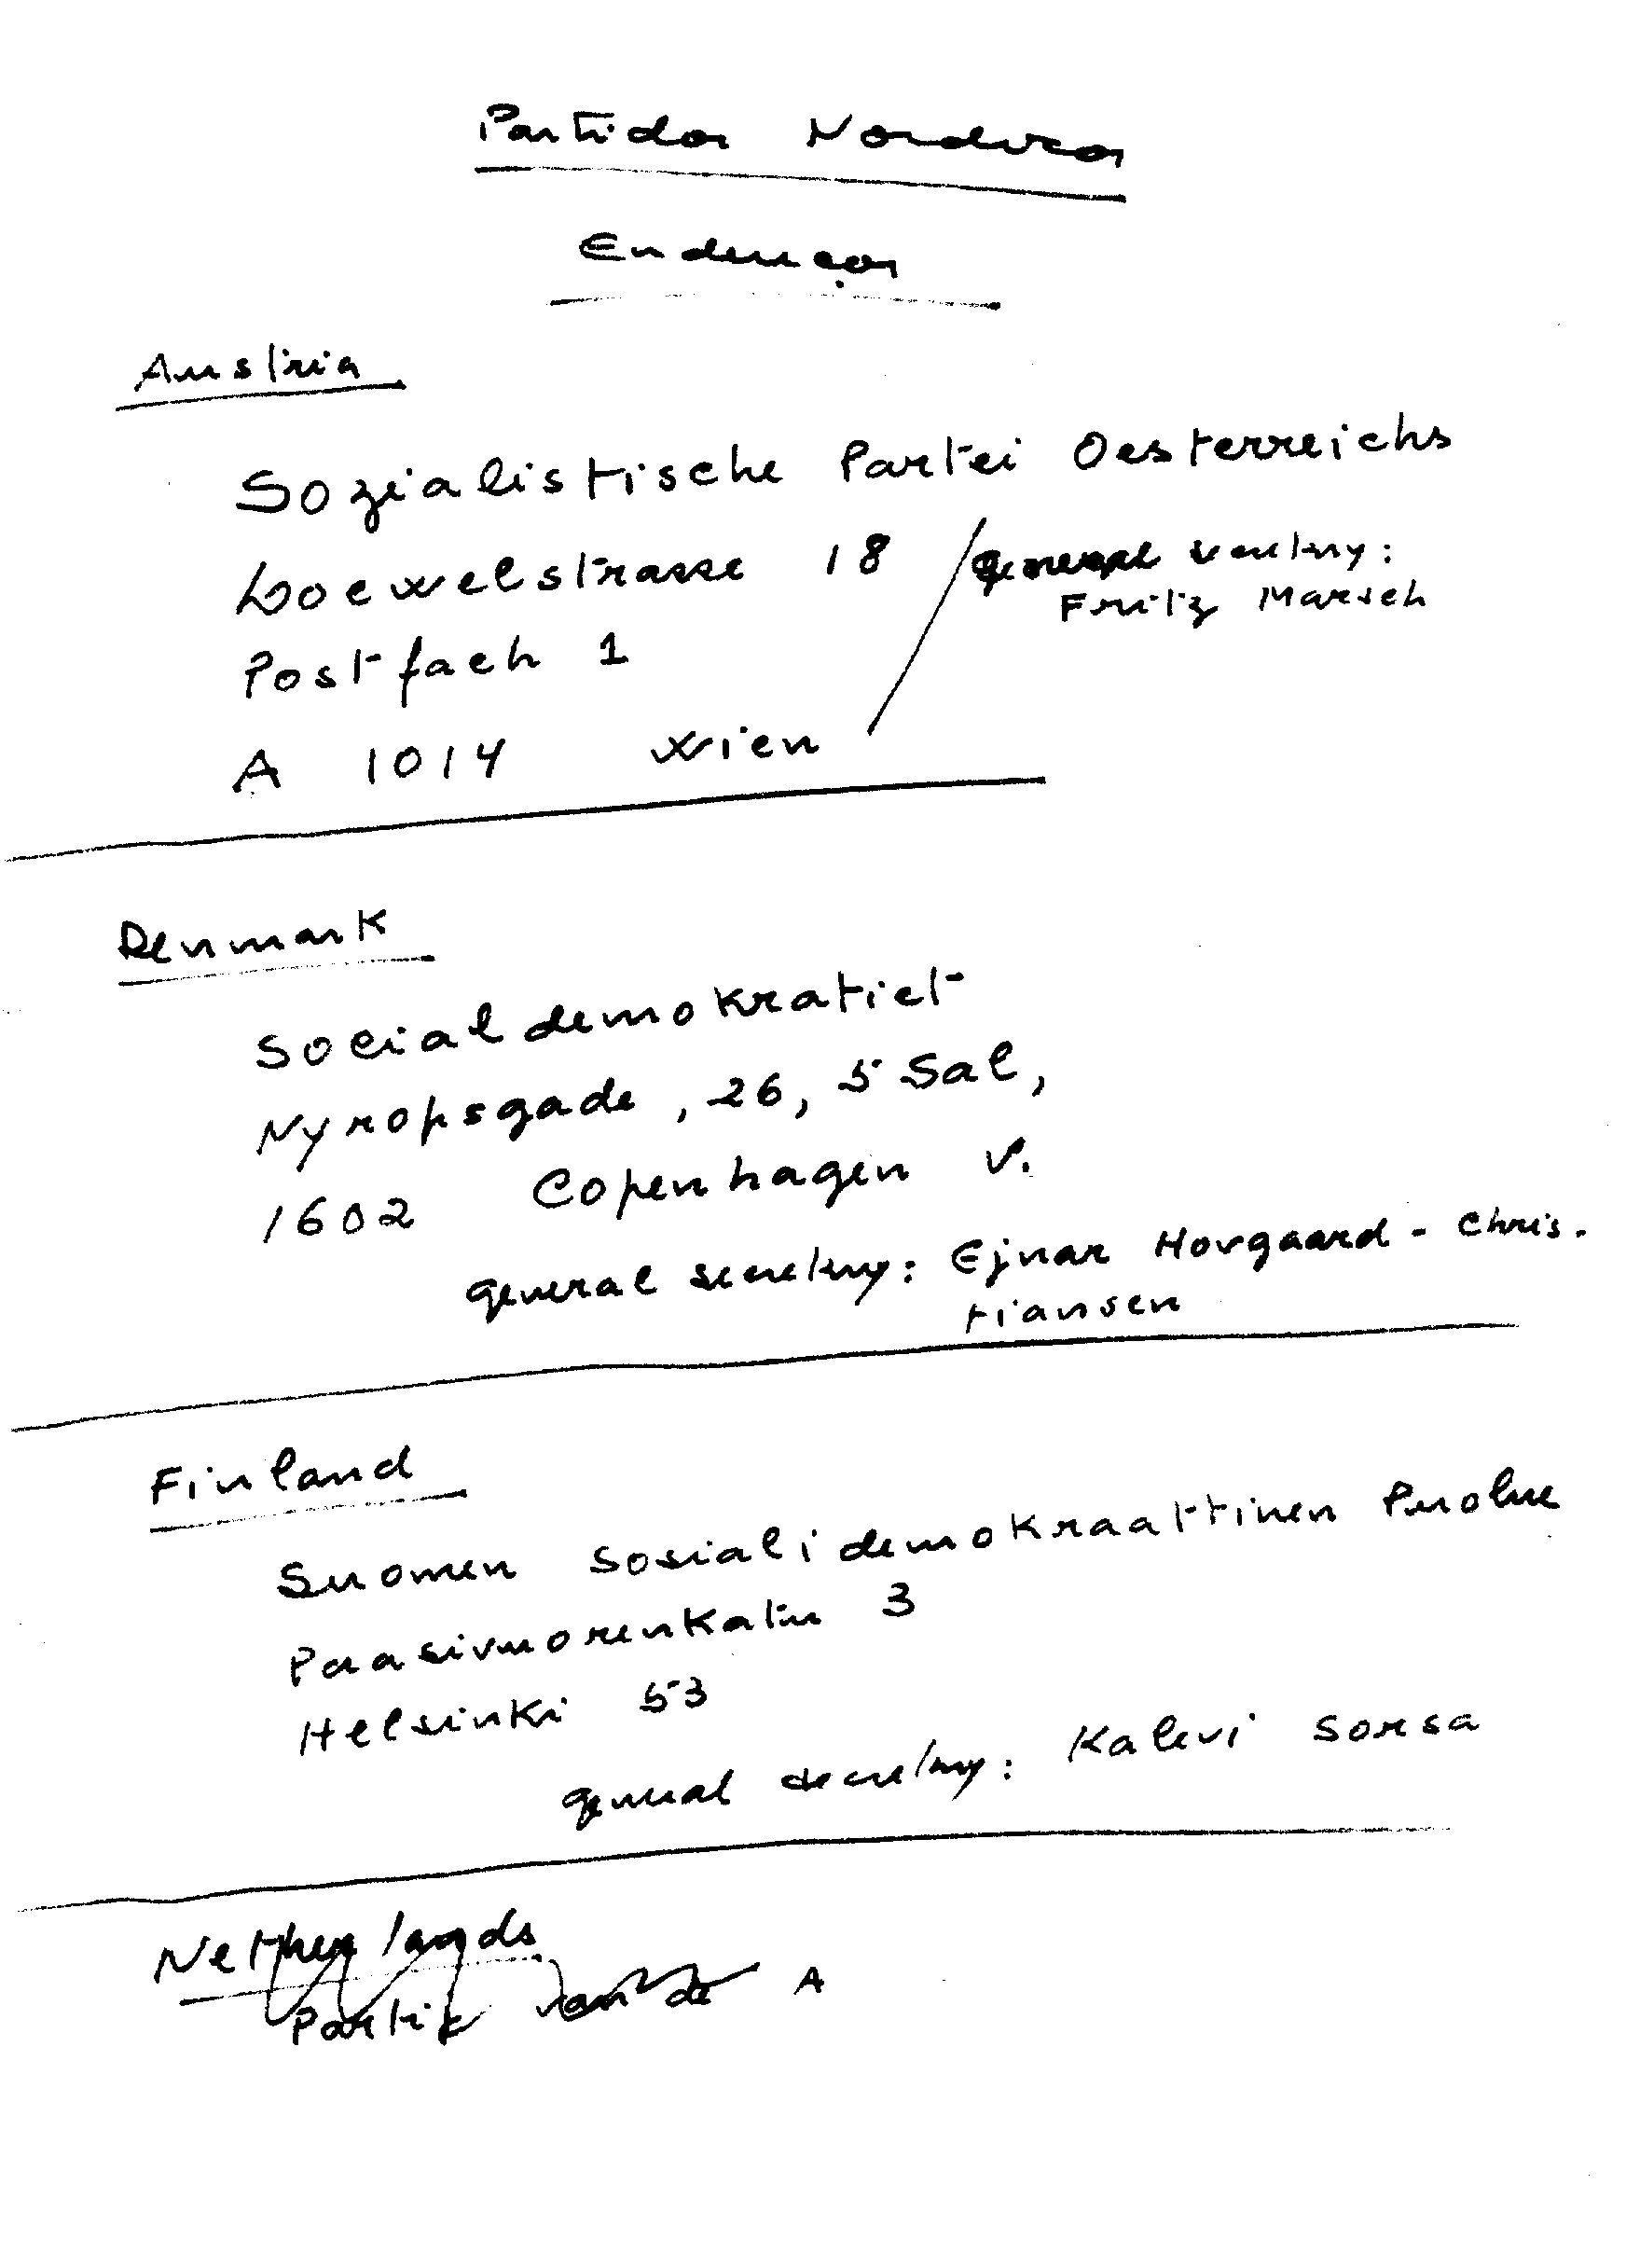 Partidos Nordicos
Endereços
Austria
Sozialistische Partei Oesterreichs
Loewelstrasse 18 / general secretary:
Fritz Marsch
Postfach 1
A 1014 Wien
Denmark
Socialdemokratiet
Nyropsgade, 26, 5 Sal,
1602 Copenhagen V.
general secretary: Ejnar Hovgaard - Chris.
tiansen
Finland
Suomen Sosialidemokraattinen Puolue
Paasivuorenkatu 3
Helsinki 53
general secretary: Kalevi Sorsa
Netherlands
Partij van de A